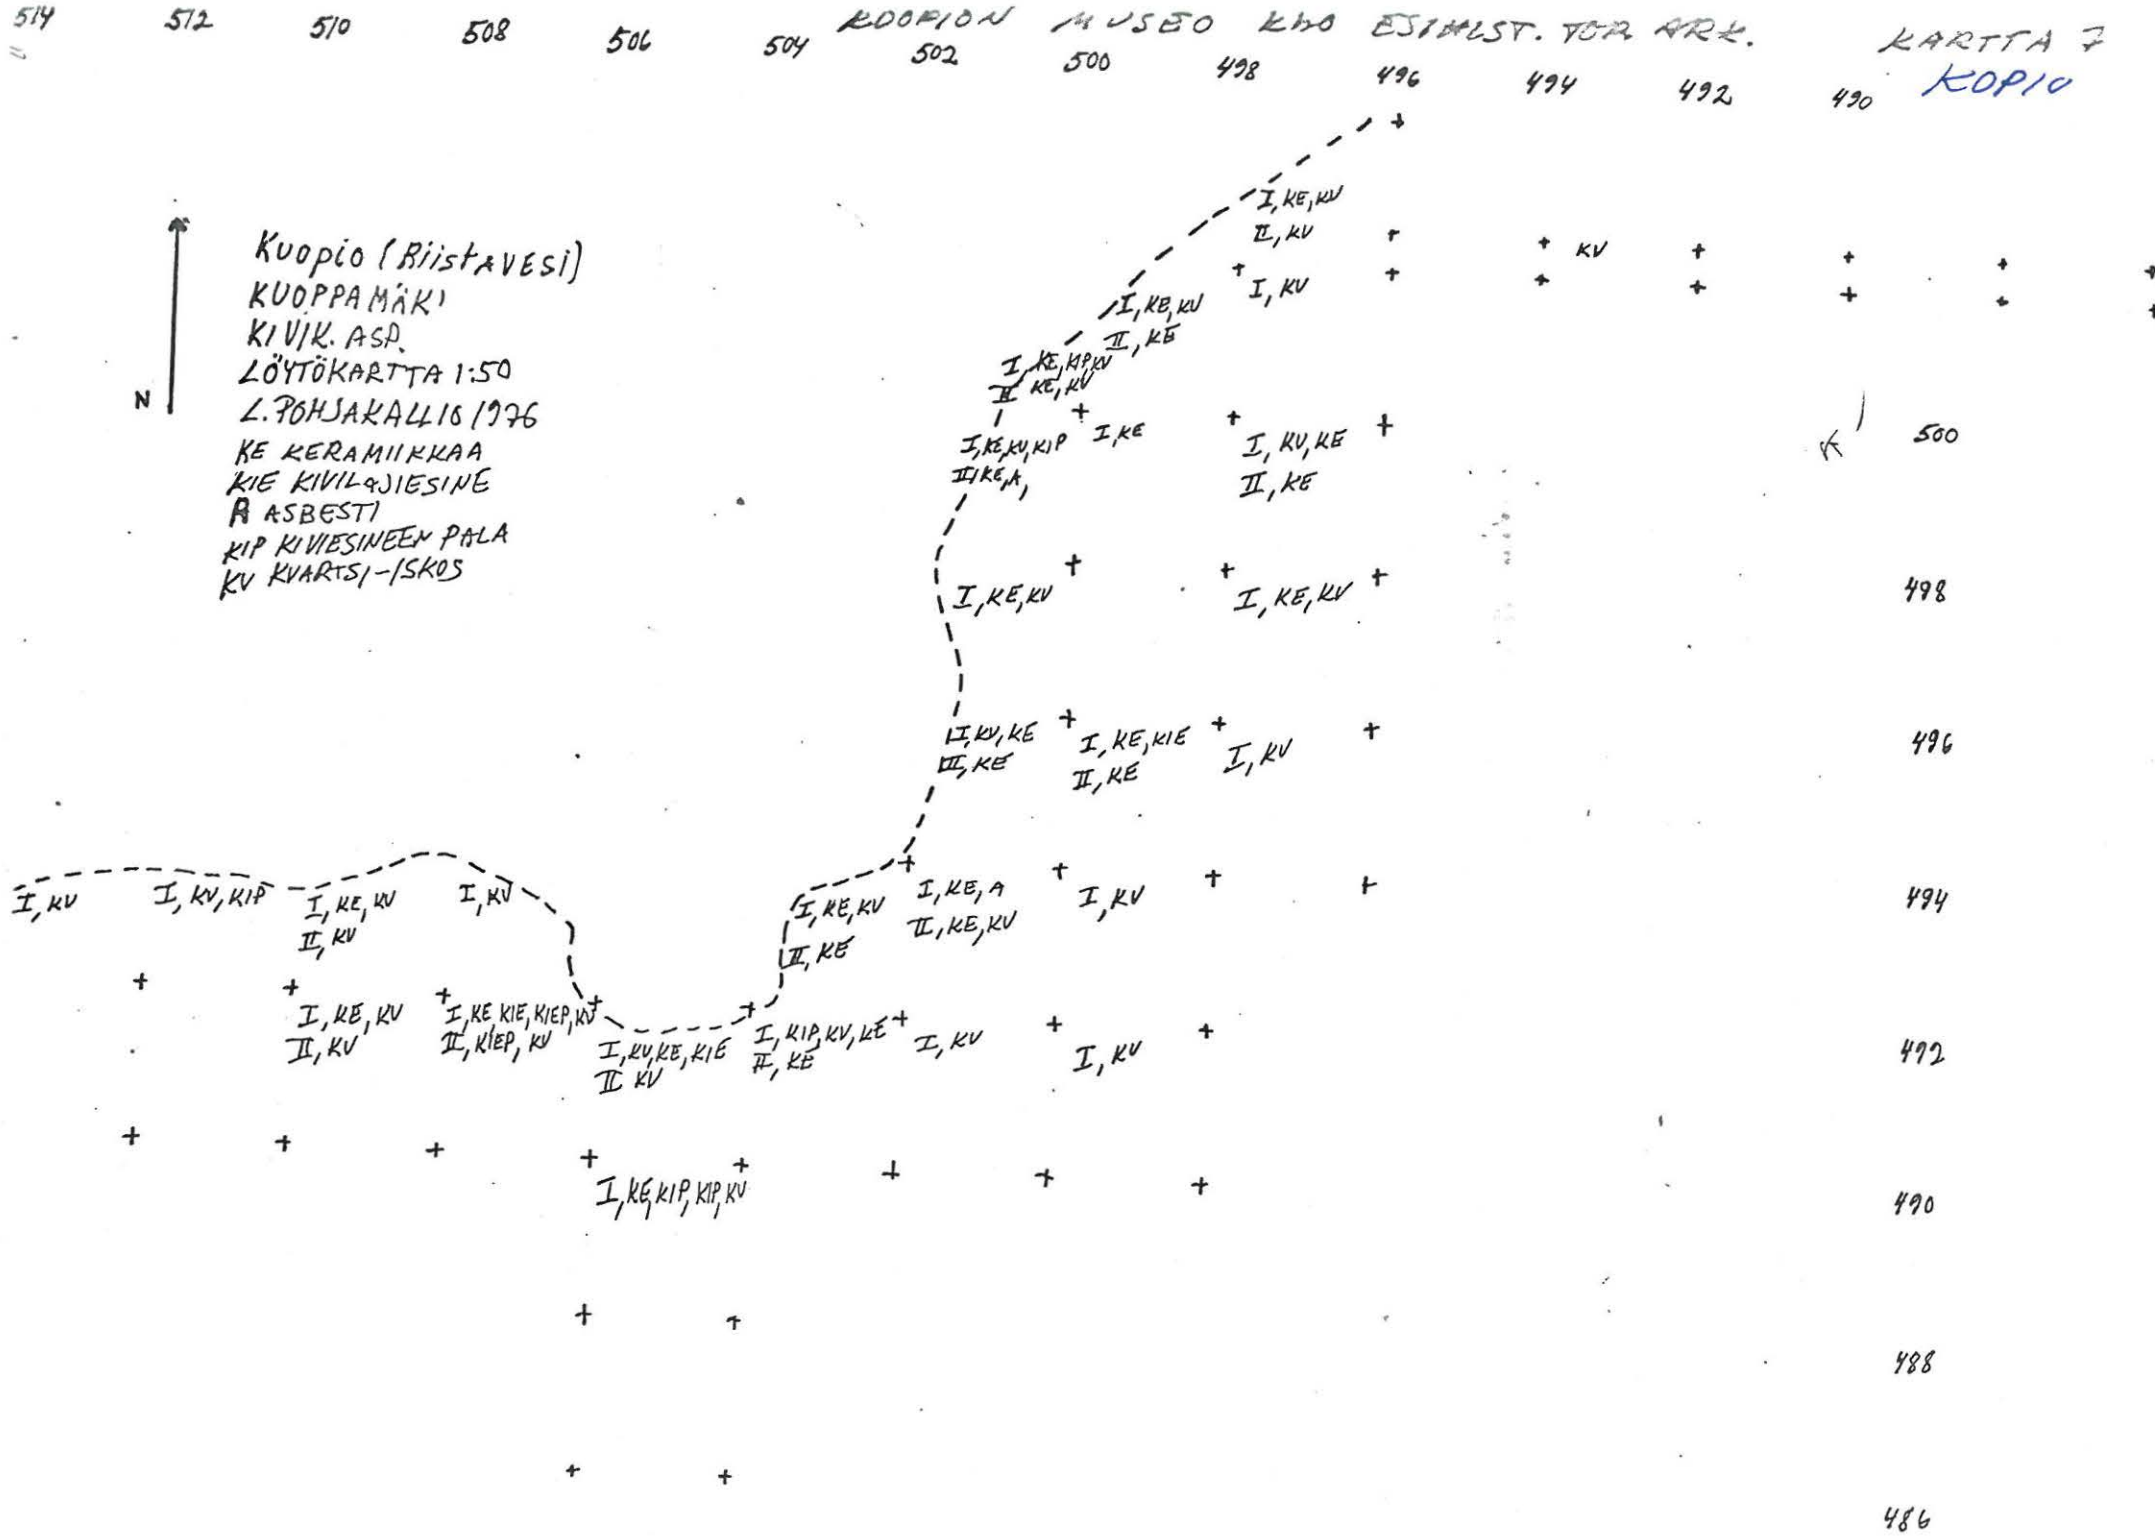 514 512 510 508 506 504 502 500 498 496 494 492 490
KUOPION MUSEO ESIHIST. ARK.
KARTTA 7
KOPIO
Kuopio (Riistavesi)
KUOPPAMÄKI
KIVIK. ASP.
LÖYTÖKARTTA 1:50
L. POHJAKALLIO 1976
KE KERAMIIKKAA
KIE KIVILAJIESINE
A ASBESTI
KIP KIVIESINEEN PALA
KV KVARTSI-ISKOS
N
I, KE, KV
II, KV
KV
I, KV
I, KE, KV
II, KE
I, KE, KIP, KV
II KE, KV
I, KE, KV, KIP
II, KE, A,
I, KE
I, KV, KE
II, KE
500
I, KE, KV
I, KE, KV
498
I, KV, KE
II, KE
I, KE, KIE
II, KE
I, KV
496
I, KV
I, KV, KIP
I, KE, KV
II, KV
I, KV
I, KE, KV
II, KE
I, KE, A
II, KE, KV
I, KV
494
I, KE, KV
II, KV
I, KE, KIE, KIEP, KV
II, KIEP, KV
I, KV, KE, KIE
II KV
I, KIP, KV, KE
II, KE
I, KV
I, KV
492
I, KE, KIP, KIP, KV
490
488
486